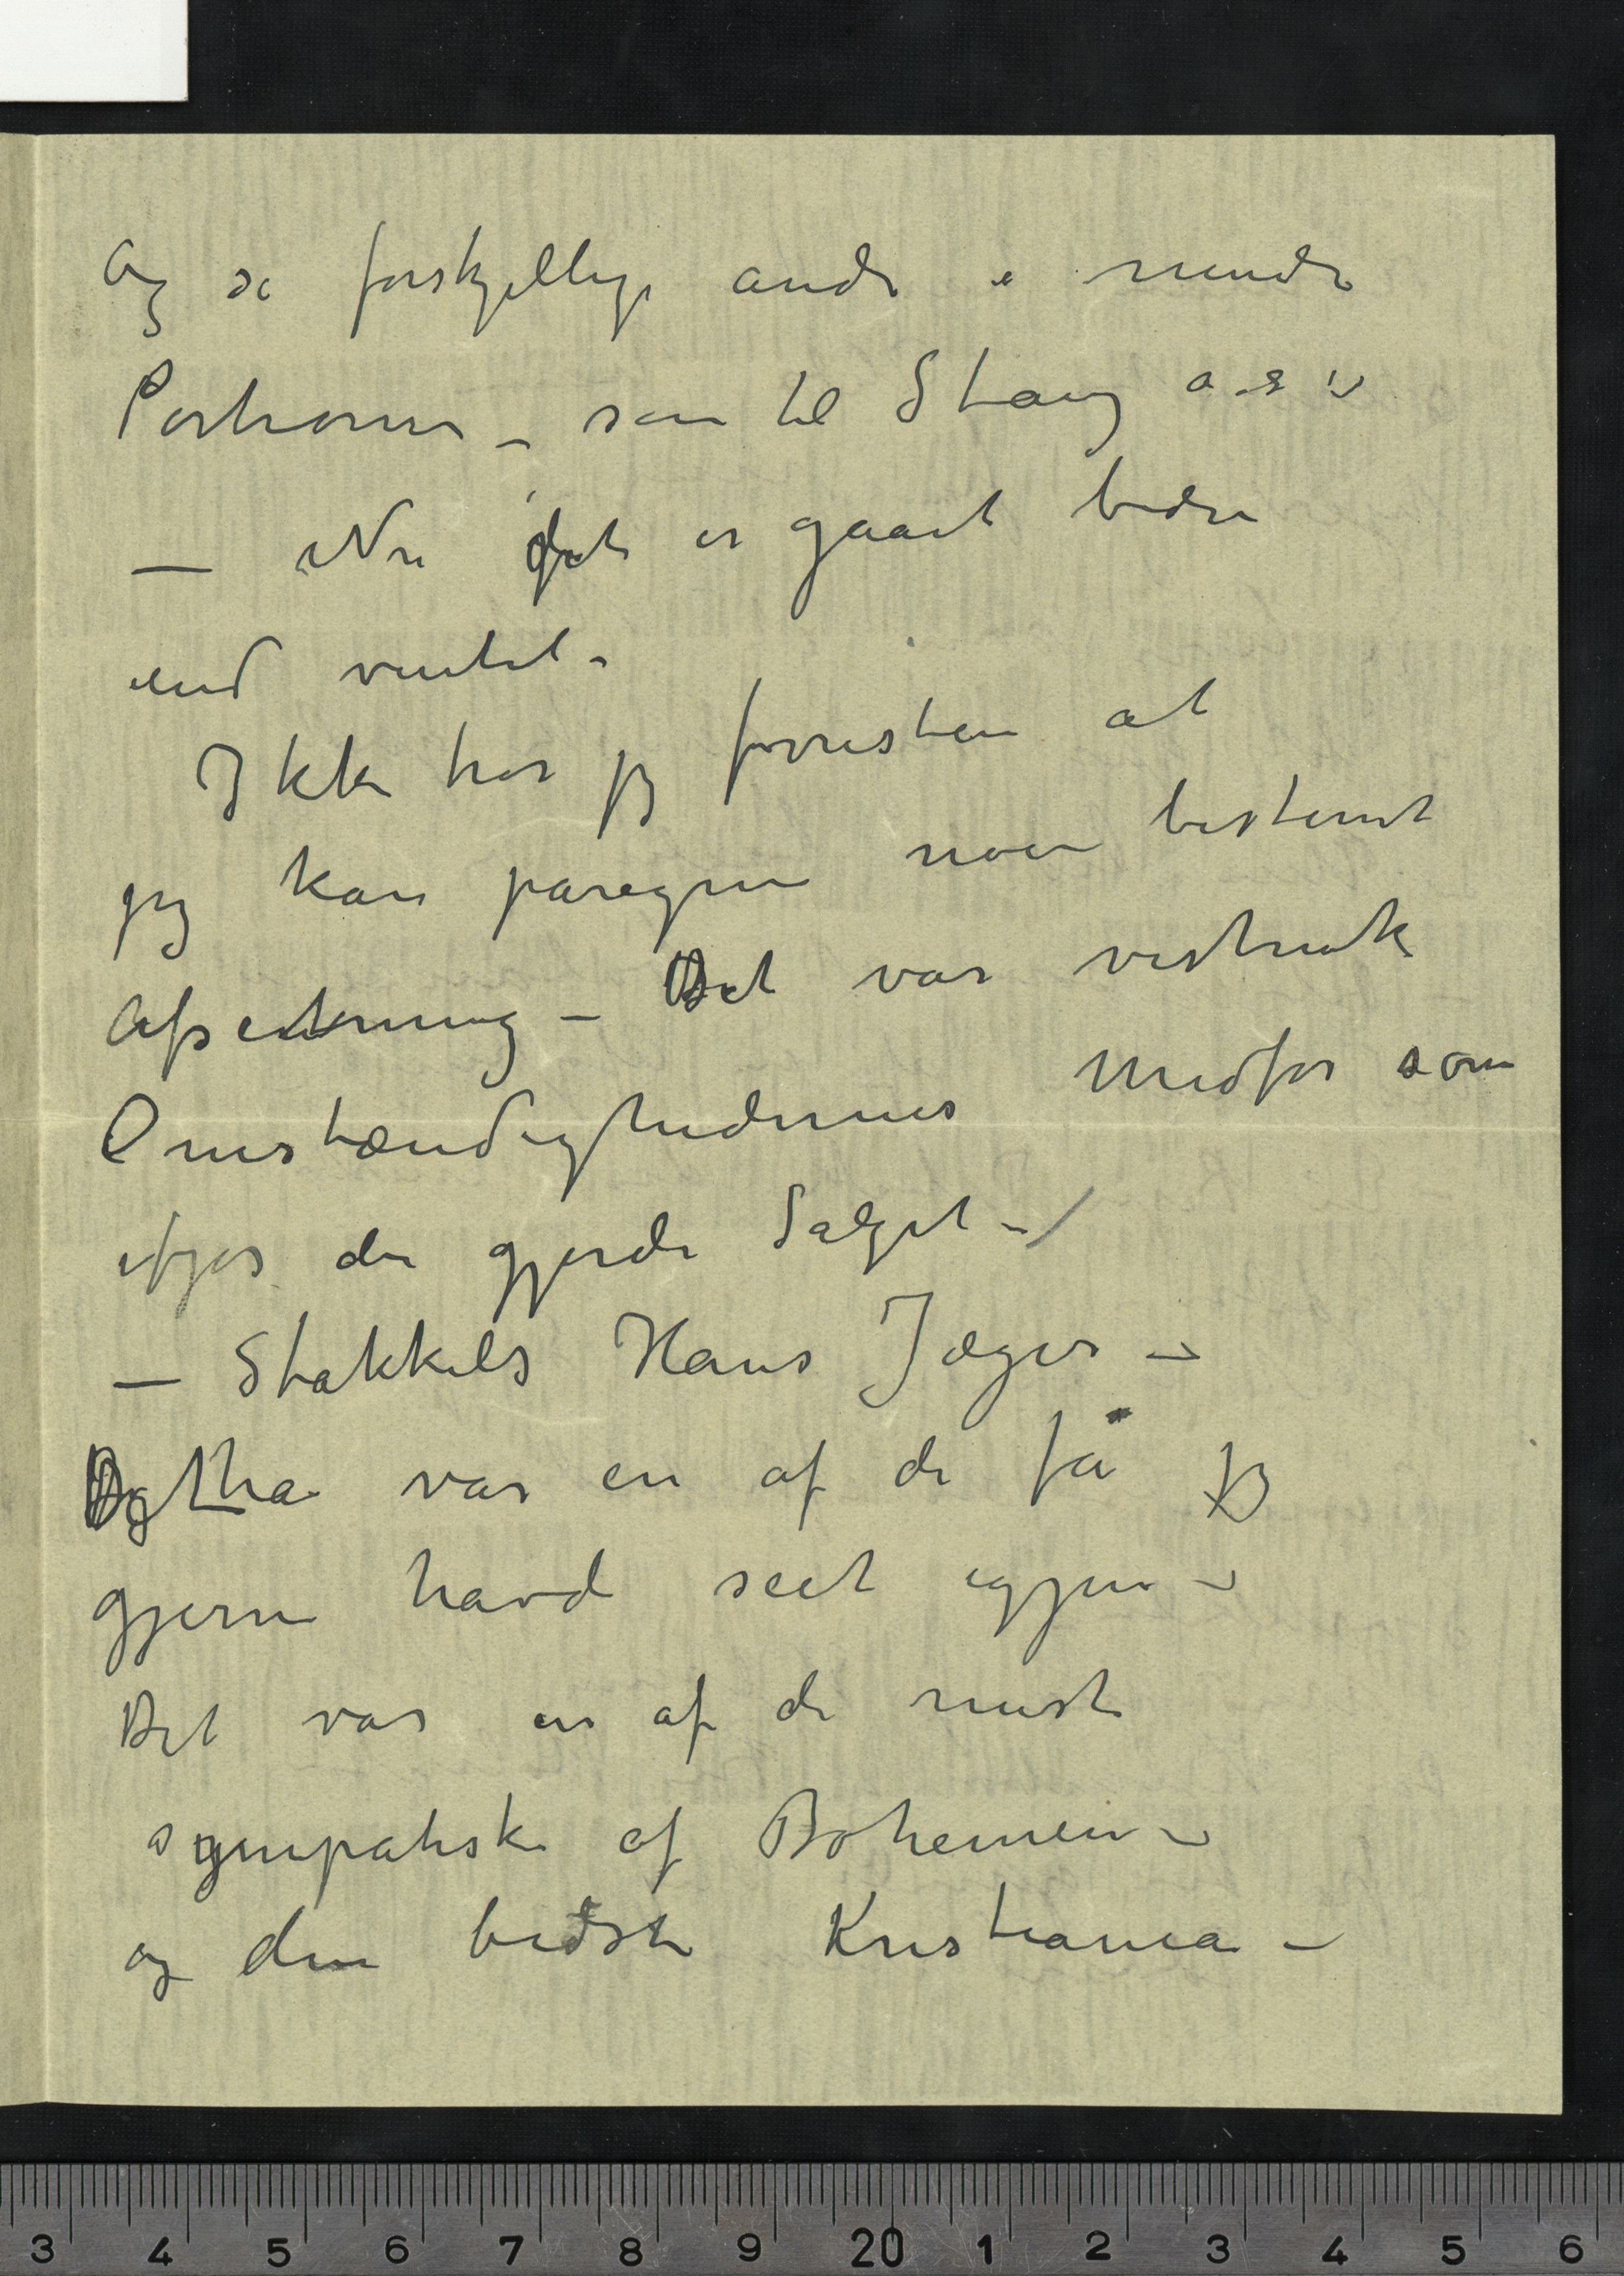 Og så forskjellige andre i mindre
Portioner – som til Stang o. s v
– Nu det er gaaet bedre
end ventet –
Ikke tror jeg forresten at
jeg kan påregne noen bestemt
Afsetning – Det var vistnok
Omstændighedernes Medfør som
ifjor der gjorde Salget –
– Stakkels Hans Jæger –
Han var en af de få jeg
gjerne havde seet igjen –
Det var en af de mest
sympatiske af Bohemen –
og den bedste Kristiania –
3 4 5 6 7 8 9 20 1 2 3 4 5 6